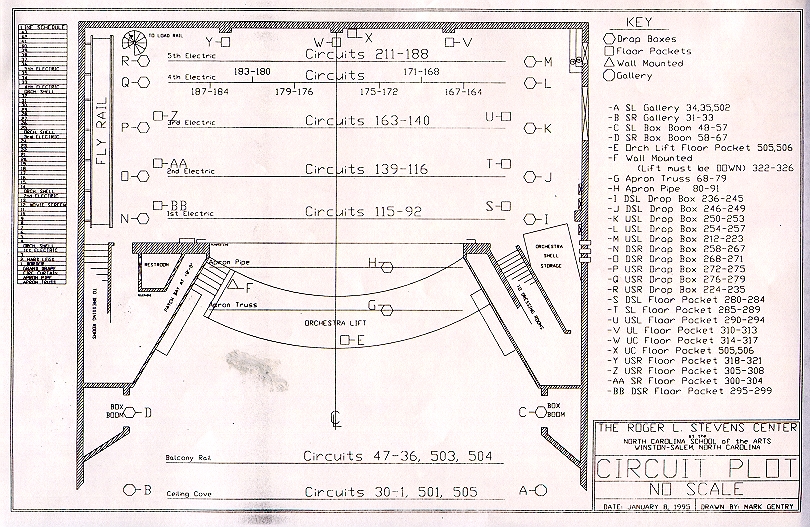 LINE SCHEDULE
TO LOAD RAIL
FLY RAIL
Y
W
X
V
R
5th Electric
Circuits 211-188
M
Q
4th Electric
183-180
171-168
187-184
179-176
175-172
167-164
L
P
Z
3rd Electric
Circuits 163-140
U
K
O
AA
2nd Electric
Circuits 139-116
T
J
N
BB
1st Electric
Circuits 115-92
S
I
RESTROOM
TO DRESSING ROOMS
Apron Pipe
H
F
Apron Truss
G
ORCHESTRA LIFT
E
ORCHESTRA
SHELL
STORAGE
TO DRESSING ROOMS
BOX
BOOM
D
C
BOX
BOOM
Balcony Rail
Circuits 47-36, 503, 504
B
Ceiling Cove
Circuits 30-1, 501, 505
A
KEY
Drop Boxes
Floor Pockets
Wall Mounted
Gallery
-A SL Gallery 34,35,502
-B SR Gallery 31-33
-C SL Box Boom 48-57
-D SR Box Boom 58-67
-E Orch Lift Floor Pocket 505,506
-F Wall Mounted
(Lift must be DOWN) 322-326
-G Apron Truss 68-79
-H Apron Pipe 80-91
-I DSL Drop Box 236-245
-J DSL Drop Box 246-249
-K USL Drop Box 250-253
-L USL Drop Box 254-257
-M USL Drop Box 212-223
-N DSR Drop Box 258-267
-O DSR Drop Box 268-271
-P USR Drop Box 272-275
-Q USR Drop Box 276-279
-R USR Drop Box 224-235
-S DSL Floor Pocket 280-284
-T SL Floor Pocket 285-289
-U USL Floor Pocket 290-294
-V UL Floor Pocket 310-313
-W UC Floor Pocket 314-317
-X UC Floor Pocket 505,506
-Y USR Floor Pocket 318-321
-Z USR Floor Pocket 305-308
-AA SR Floor Pocket 300-304
-BB DSR Floor Pocket 295-299
THE ROGER L. STEVENS CENTER
AT THE
NORTH CAROLINA SCHOOL of the ARTS
WINSTON-SALEM, NORTH CAROLINA
CIRCUIT PLOT
NO SCALE
DATE: JANUARY 8, 1995
DRAWN BY: MARK GENTRY